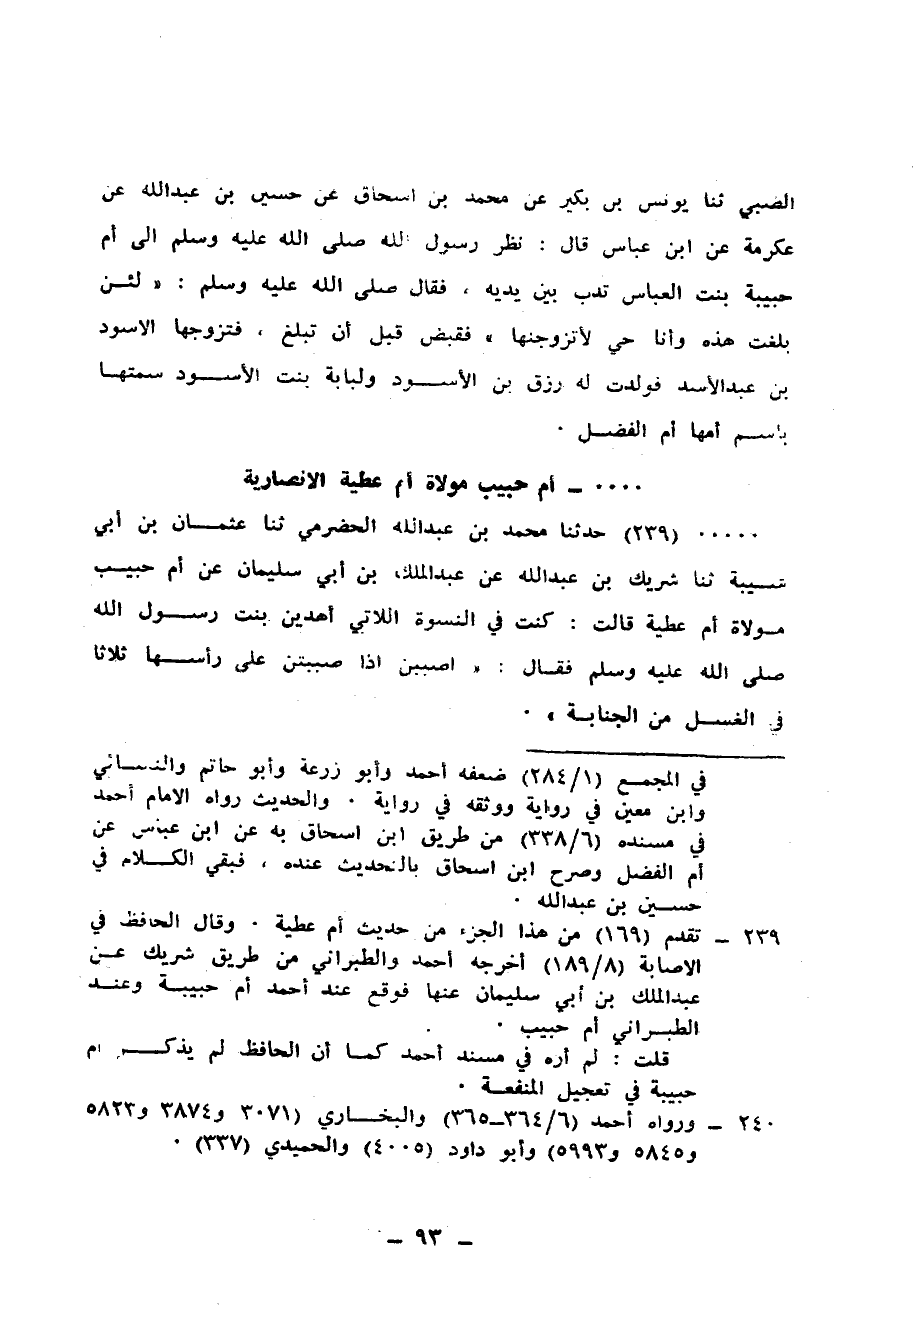 الضبي ثنا يونس بن بكير عن محمد بن اسحاق عن حسين بن عبدالله عن
عكرمة عن ابن عباس قال : نظر رسول الله صلى الله عليه وسلم الى أم
حبيبة بنت العباس تدب بين يديه ، فقال صلى الله عليه وسلم : « لئن
بلغت هذه وأنا حي لأتزوجنها » فقبض قبل أن تبلغ ، فتزوجها الاسود
بن عبدالأسد فولدت له رزق بن الأسود ولبابة بنت الأسود سمتها
باسم أمها أم الفضل ٠
٠٠٠٠ ـ أم حبيب مولاة أم عطية الانصارية
٠٠٠٠٠ (٢٣٩) حدثنا محمد بن عبدالله الحضرمي ثنا عثمان بن أبي
شيبة ثنا شريك بن عبدالله عن عبدالملك بن أبي سليمان عن أم حبيب
مولاة أم عطية قالت : كنت في النسوة اللاتي أهدين بنت رسول الله
صلى الله عليه وسلم فقال : « اصببن اذا صببتن على رأسها ثلاثا
في الغسل من الجنابة » ٠
في المجمع (٢٨٤/١) ضعفه أحمد وأبو زرعة وأبو حاتم والنسائي
وابن معين في رواية ووثقه في رواية ٠ والحديث رواه الامام أحمد
في مسنده (٣٣٨/٦) من طريق ابن اسحاق به عن ابن عباس عن
أم الفضل وصرح ابن اسحاق بالتحديث عنده ، فبقي الكلام في
حسين بن عبدالله ٠
٢٣٩ ـ تقدم (١٦٩) من هذا الجزء من حديث أم عطية ٠ وقال الحافظ في
الاصابة (١٨٩/٨) أخرجه أحمد والطبراني من طريق شريك عن
عبدالملك بن أبي سليمان عنها فوقع عند أحمد أم حبيبة وعند
الطبراني أم حبيب ٠
قلت : لم أره في مسند أحمد كما أن الحافظ لم يذكر ام
حبيبة في تعجيل المنفعة ٠
٢٤٠ ـ ورواه أحمد (٣٦٤/٦ـ٣٦٥) والبخاري (٣٠٧١ و٣٨٧٤ و٥٨٢٣
و٥٨٤٥ و٥٩٩٣) وأبو داود (٤٠٠٥) والحميدي (٣٣٧) ٠
ـ ٩٣ ـ